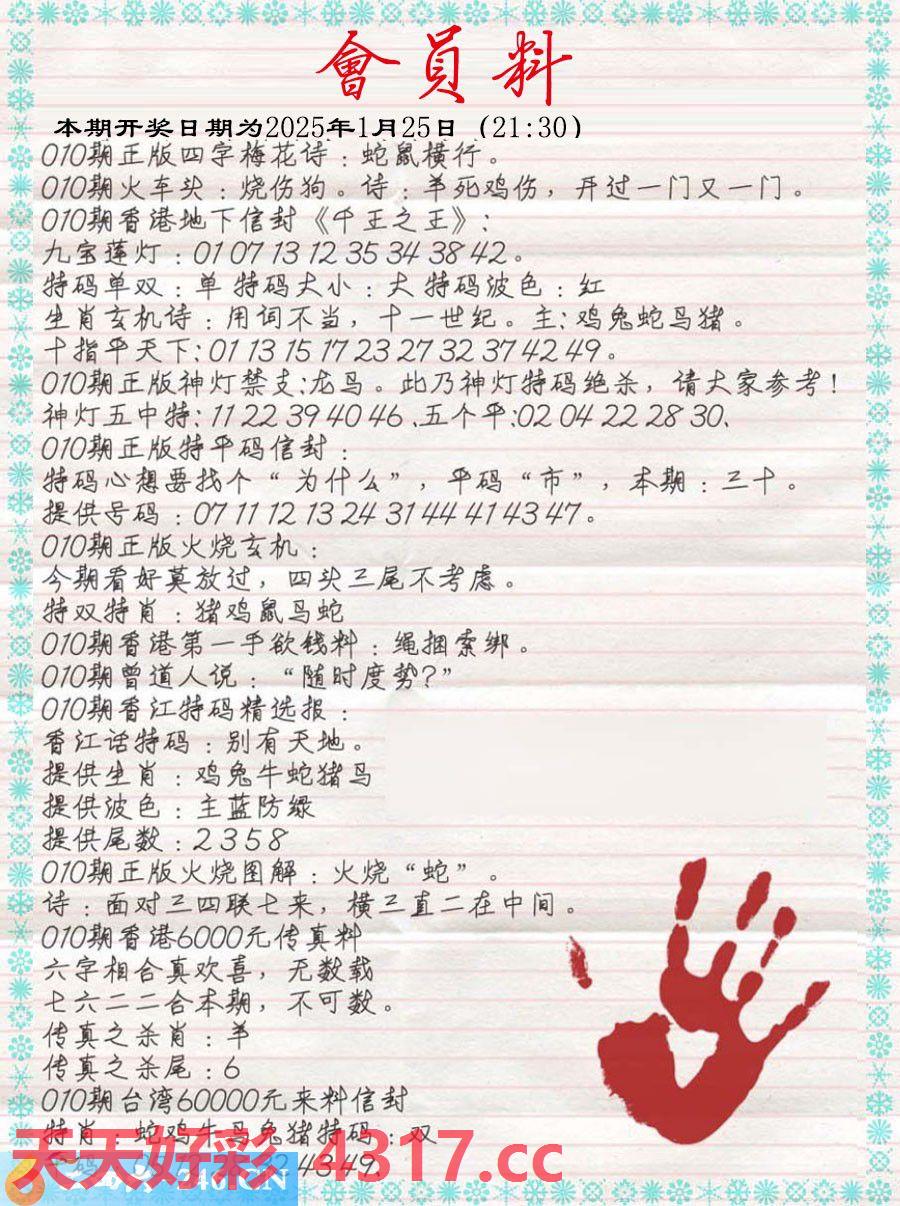 會員料
本期开奖日期为2025年1月25日（21:30）
010期正版四字梅花诗：蛇鼠横行。
010期火车头：烧伤狗。诗：羊死鸡伤，开过一门又一门。
010期香港地下信封《千王之王》：
九宝莲灯：01 07 13 12 35 34 38 42。
特码单双：单 特码大小：大 特码波色：红
生肖玄机诗：用词不当，十一世纪。主：鸡兔蛇马猪。
十指平天下：01 13 15 17 23 27 32 37 42 49。
010期正版神灯禁支：龙马。此乃神灯特码绝杀，请大家参考！
神灯五中特：11 22 39 40 46、五个平：02 04 22 28 30、
010期正版特平码信封：
特码心想要找个“为什么”，平码“市”，本期：三十。
提供号码：07 11 12 13 24 31 44 41 43 47。
010期正版火烧玄机：
今期看好莫放过，四头三尾不考虑。
特双特肖：猪鸡鼠马蛇
010期香港第一手欲钱料：绳捆索绑。
010期曾道人说：“随时度势？”
010期香江特码精选报：
香江话特码：别有天地。
提供生肖：鸡兔牛蛇猪马
提供波色：主蓝防绿
提供尾数：2 3 5 8
010期正版火烧图解：火烧“蛇”。
诗：面对三四联七来，横三直二在中间。
010期香港6000元传真料
六字相合真欢喜，无数载
七六二二合本期，不可数。
传真之杀肖：羊
传真之杀尾：6
010期台湾60000元来料信封
特肖：蛇鸡牛马兔猪特码：双
天天好彩 4317.cc
43 49、
246.CN